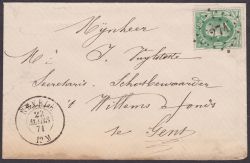 Mijnheer
Mr J. Vuylsteke
Secretaris Schatbewaarder
't Willems fonds
te Gent
271
71